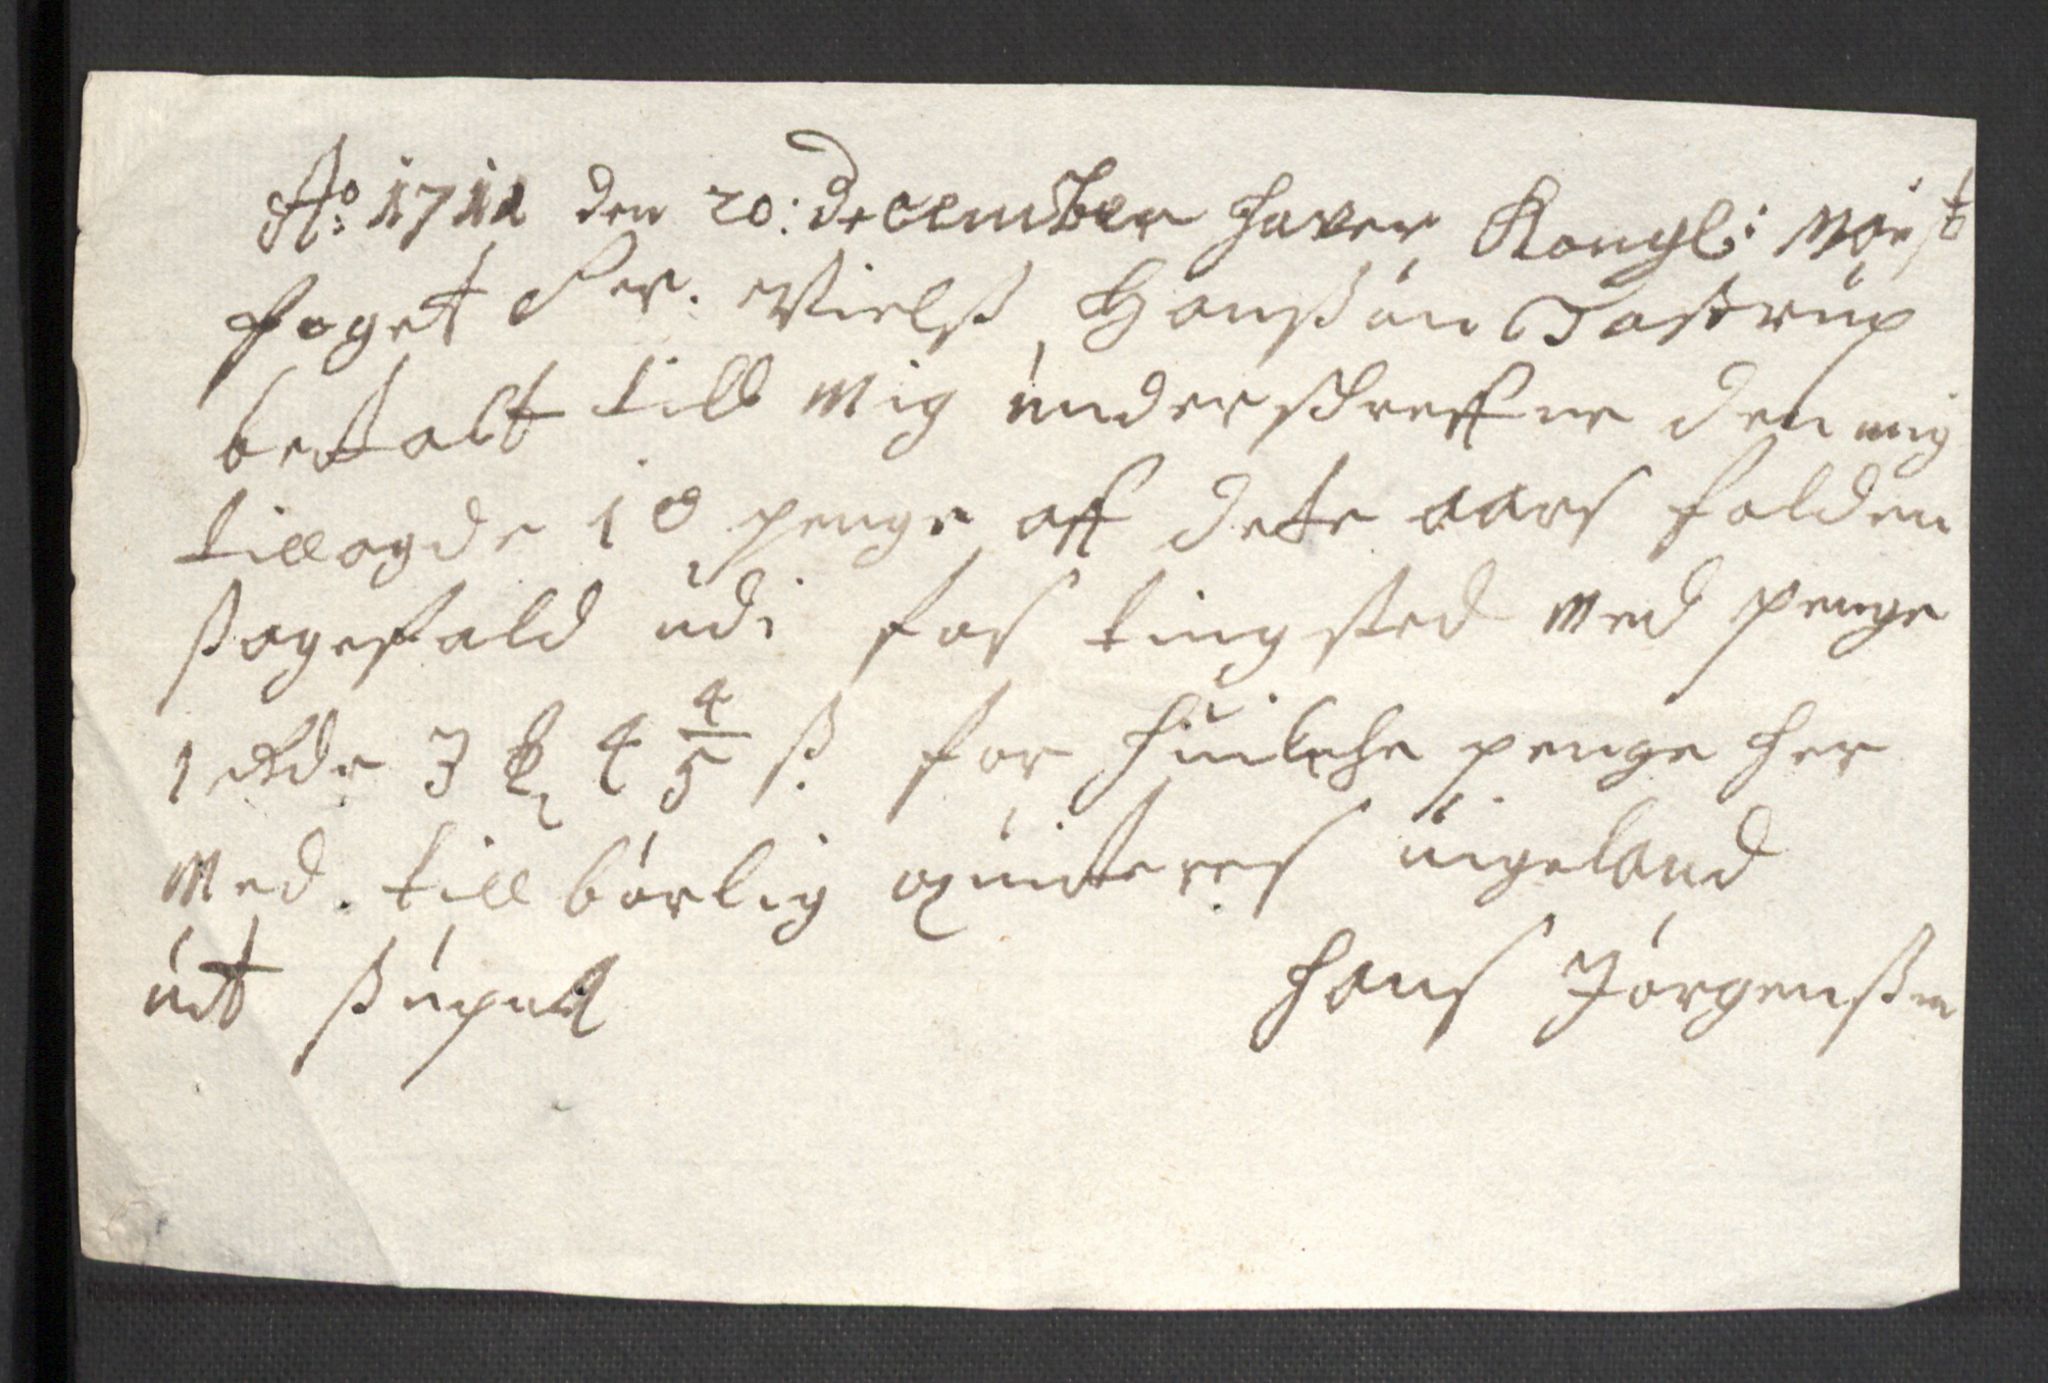 Ao: 1711 den 20: December haver Kongl: Mayst
foget Sr. Nielß Hanßøn Tastrup
bettalt till mig underschreffne den mig
tillagde 10 penge aff dete aars falden
ßagefald udi fos tingsted med penge
1 Rdr 3 k 4 4/5 ß for huilche penge her
med. till børlig qviteres uigeland
ut ßupra Hans Jørgenßen